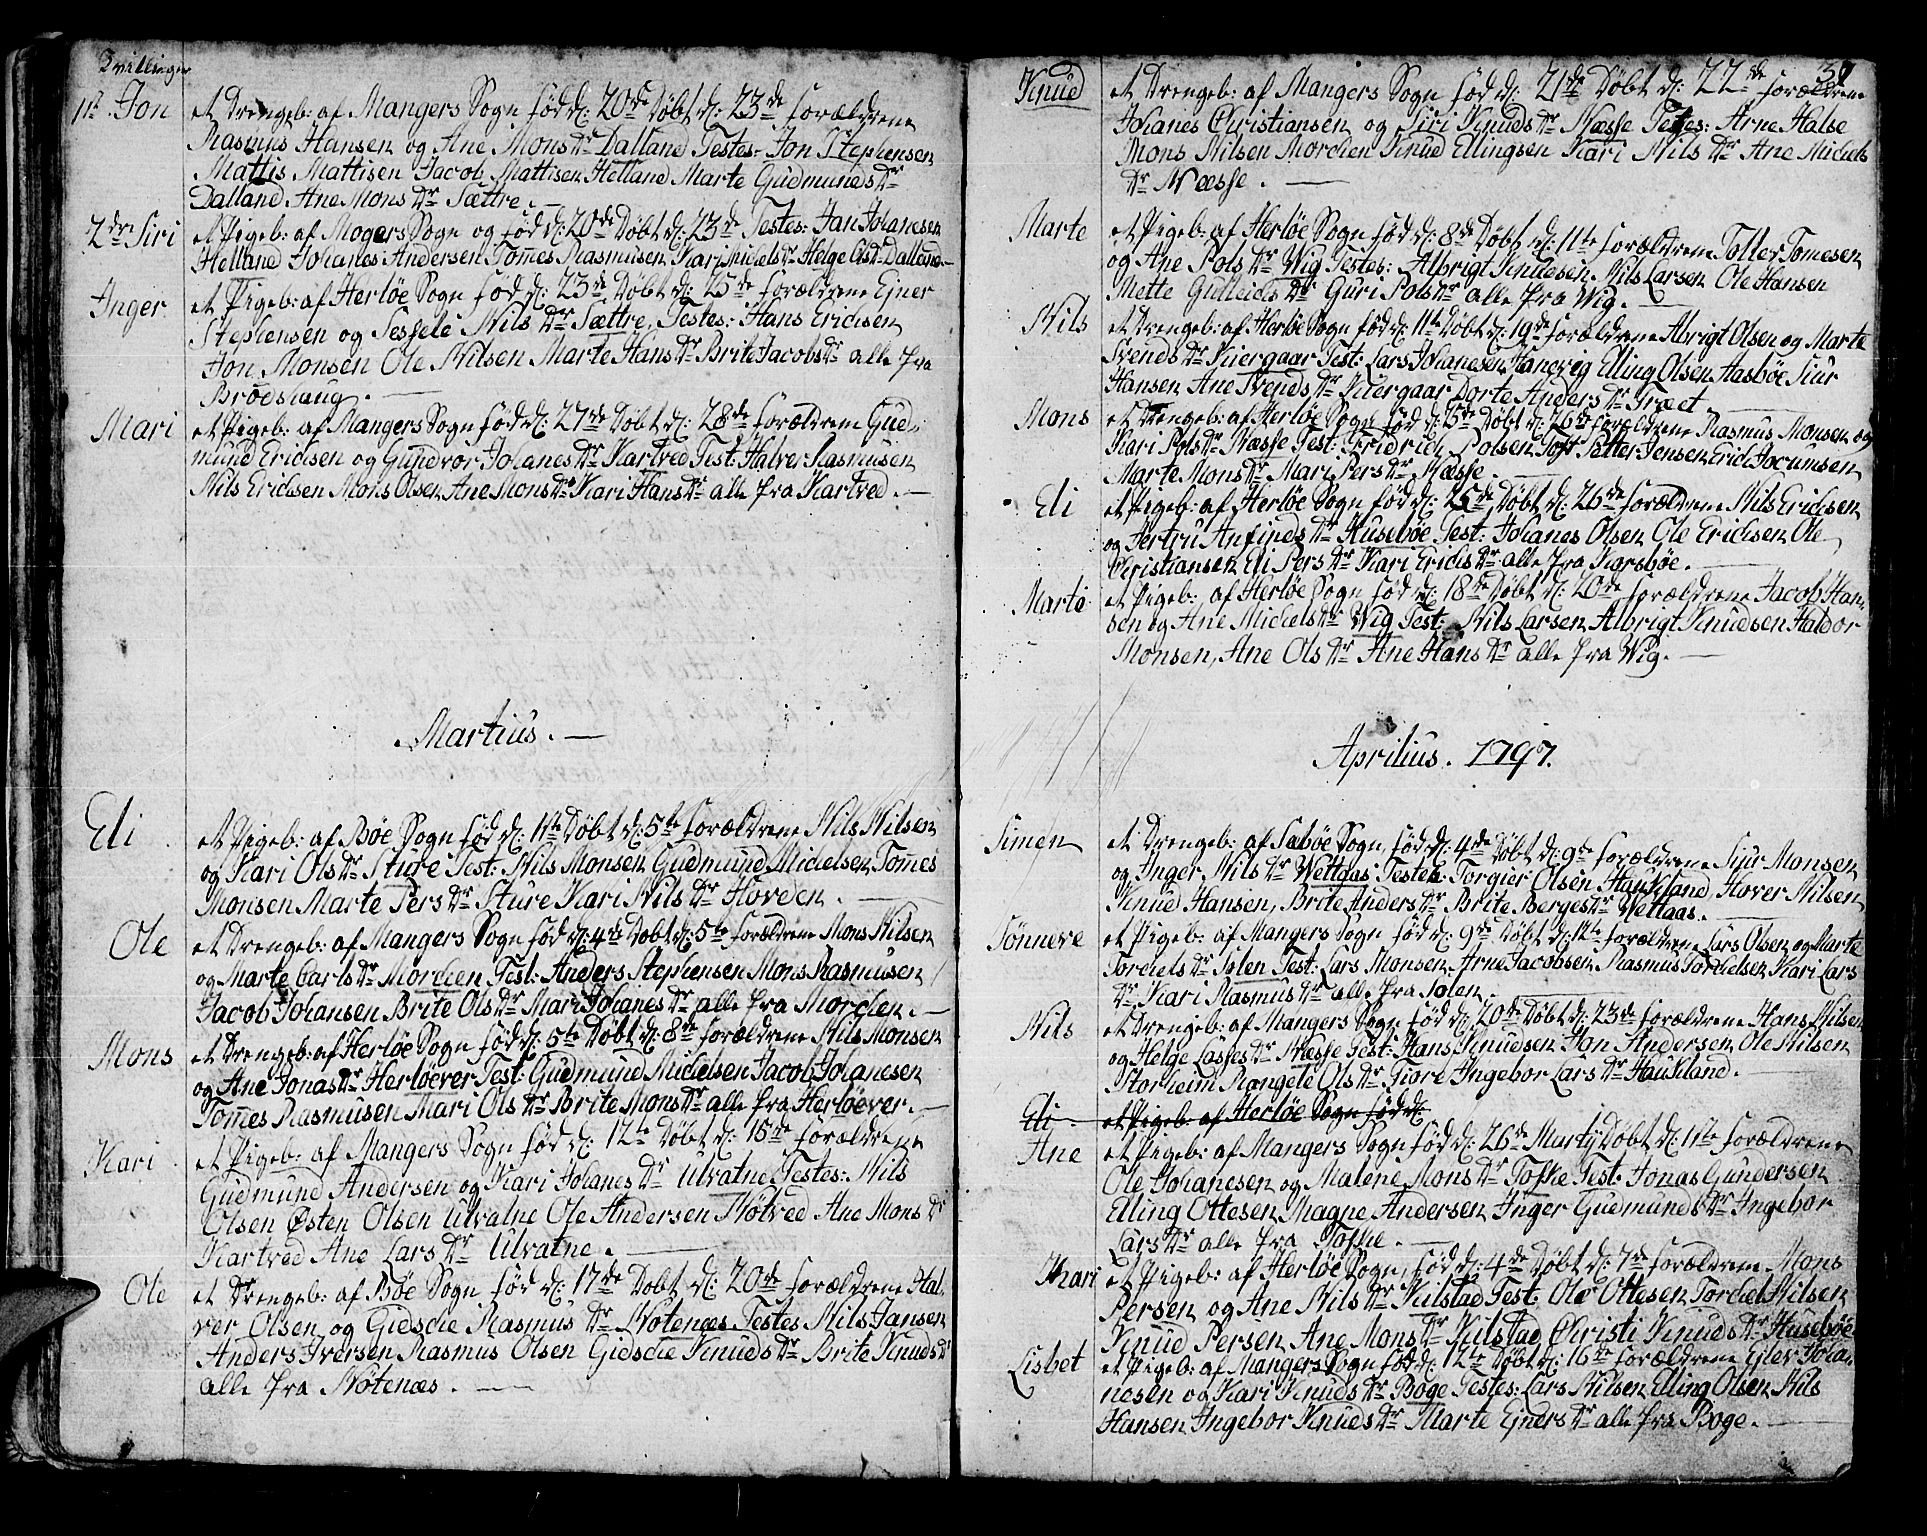 2villinger
1te Jon et Drengeb: af Mangers Sogn född d: 20de Döbt d: 23de forældrene
Rasmus Hansen og Ane Mons Dr Dalland Testes: Jon Stephensen
Mattis Mattisen Jacob Mattisen Helland Marte Gudmunds Dr
Dalland Ane Mons Dr Sættre.
2dre Siri et Pigeb: af Mogers Sogn og föd d: 20de Döbt d: 23de Testes: Jan Johanesen
Helland Johanes Andersen Tomes Rasmusen Kari Michels Dr Helge Ols Dr Dalland
Inger et Pigeb: af Herlöe Sogn föd d: 23de Döbt d: 25de forældrene Ejner
Stephensen og Sessele Nils Dr Sættre, Testes: Hans Ericksen
Jon Monsen Ole Nilsen Marte Hans Dr Brite Jacobs Dr alle fra
Brödshaug.
Mari et Pigeb: af Mangers Sogn föd d: 27de Döbt d: 28de forældrene Gud-
mund Ericksen og Gundvor Johanes Dr Kartved Test: Halver Rasmusen
Nils Ericksen Mons Olsen Ane Mons Dr Kari Hans Dr alle fra Kartved.
Martius.
Eli et Pigeb: af Böe Sogn föd d: 1te Döbt d: 5te forældrene Nils Nilsen
og Kari Ols Dr Sture Test: Nils Monsen Gudmund Mickelsen Tomes
Monsen Marte Pers Dr Sture Kari Nils Dr Hovden.
Ole et Drengeb: af Mangers Sogn föd d: 4de Döbt d: 5te forældrene Mons Nilsen
og Marte Carls Dr Morcken Test: Anders Stephensen Mons Rasmusen
Jacob Johansen Brite Ols Dr Mari Johanes Dr alle fra Morcken.
Mons et Drengeb: af Herlöe Sogn föd d: 5te Döbt d: 8de forældrene Nils Monsen
og Ane Jonas Dr Herlöever Test: Gudmund Mickelsen Jacob Johanesen
Tomes Rasmusen Mari Ols Dr Brite Mons Dr alle fra Herlöever.
Kari et Pigeb: af Mangers Sogn föd d: 12te Döbt d: 15de forældrene
Gudmund Andersen og Kari Johanes Dr Ulvatne Testes: Nils
Olsen Østen Olsen Ulvatne Ole Andersen Nötved Ane Mons Dr
Kartved Ane Lars Dr Ulvatne.
Ole et Drengeb: af Böe Sogn föd d: 17de Döbt d: 20de forældrene Hal-
ver Olsen og Gidsche Rasmus Dr Nötenæs Testes Nils Jansen
Anders Iversen Rasmus Olsen Gidsche Knuds Dr Brite Knuds Dr
alle fra Nötenæs.
39
Knud et Drengeb: af Mangers Sogn föd d: 21de Döbt d: 22de forældrene
Johanes Christiansen og Siri Knuds Dr Næsse Testes: Arne Halse
Mons Nilsen Morcken Knud Ellingsen Kari Nils Dr Ane Mickels
Dr Næsse.
Marte et Pigeb: af Herlöe Sogn föd d: 8de Döbt d: 11te forældrene Toller Tomesen
og Ane Pols Dr Wig Testes: Albrigt Knudsen Nils Larsen Ole Hansen
Mette Gulleicks Dr Guri Pols Dr alle fra Wig.
Nils et Drengeb: af Herlöe Sogn föd d: 11te Döbt d: 19de forældrene Abrigt Olsen og Marte
Svends Dr Kiergaar Test: Lars Johanesen Hanevig Elling Olsen Aasböe Siur
Hansen Ane Svends Dr Kiergaar Dorte Anders Dr Træet.
Mons et Drengeb: af Herlöe Sogn föd d: 15de Döbt d: 26de forældrene Rasmus Monsen og
Kari Pols Dr Næsse Test: Fridrick Polsen Toft Petter Jensen Erick Jocumsen
Marte Mons Dr Mari Pers Dr Næsse.
Eli et Pigeb: af Herlöe Sogn föd d: 25de Döbt d: 26de forældrene Nils Ericksen
og Jertru Anfinds Dr Huseböe Test: Johanes Olsen Ole Ericksen Ole
Christiansen Eli Pers Dr Kari Ericks Dr alle fra Karsböe.
Marte et Pigeb: af Herlöe Sogn föd d: 18de Döbt d: 20de forældrene Jacob Han-
sen og Ane Mickels Dr Wig Test: Nils Larsen Albrigt Knudsen Haldor
Monsen, Ane Ols Dr Ane Hans Dr alle fra Wig.
Aprilius. 1797.
Simen et Drengeb: af Sæböe Sogn, föd d: 4de Döbt d: 9de forældrene Sjur Monsen
og Inger Nils Dr Wettaas Testes: Torgier Olsen Haukeland, Hover Nilsen
Knud Hansen, Brite Anders Dr Brite Berges Dr Wettaas.
Sönneve et Pigeb: af Mangers Sogn föd d: 9de Döbt d: 12te forældrene Lars Olsen og Marte
Torckels Dr Solen Test: Lars Monsen Arne Jacobsen Rasmus Torckelsen Kari Lars
Dr Kari Rasmus Dr alle fra Solen.
Nils et Drengeb: af Mangers Sogn föd d: 20de Döbt d: 23de forældrene Hans Nilsen
og Helge Lasses Dr Næsse Test: Hans Knudsen Jan Andersen Ole Nilsen
Storheim Rangele Ols Dr Fiöre Ingebor Lars Dr Haukeland.
Eli et Pigeb: af Herlöe Sogn föd d:
Ane et Pigeb: af Mangers Sogn föd d: 26de Martij Döbt d: 11te forældrene
Ole Johanesen og Malene Mons Dr Toske Test: Jonas Gundersen
Elling Ottesen Magne Andersen Inger Gudmunds Dr Ingebor
Lars Dr alle fra Toske.
Kari et Pigeb: af Herlöe Sogn, föd d: 4de Döbt d: 7de forældrene Mons
Persen og Ane Nils Dr Kilstad Test: Ole Ottesen Torckel Nilsen
Knud Persen Ane Mons Dr Kilstad Christi Knuds Dr Huseböe
Lisbet et Pigeb: af Mangers Sogn föd d: 12te Döbt d: 16de forældrene Ejlev Joha-
nesen og Kari Knuds Dr Boge Testes: Lars Nilsen Elling Olsen Nils
Hansen Ingebor Knuds Dr Marte Ejners Dr alle fra Boge.